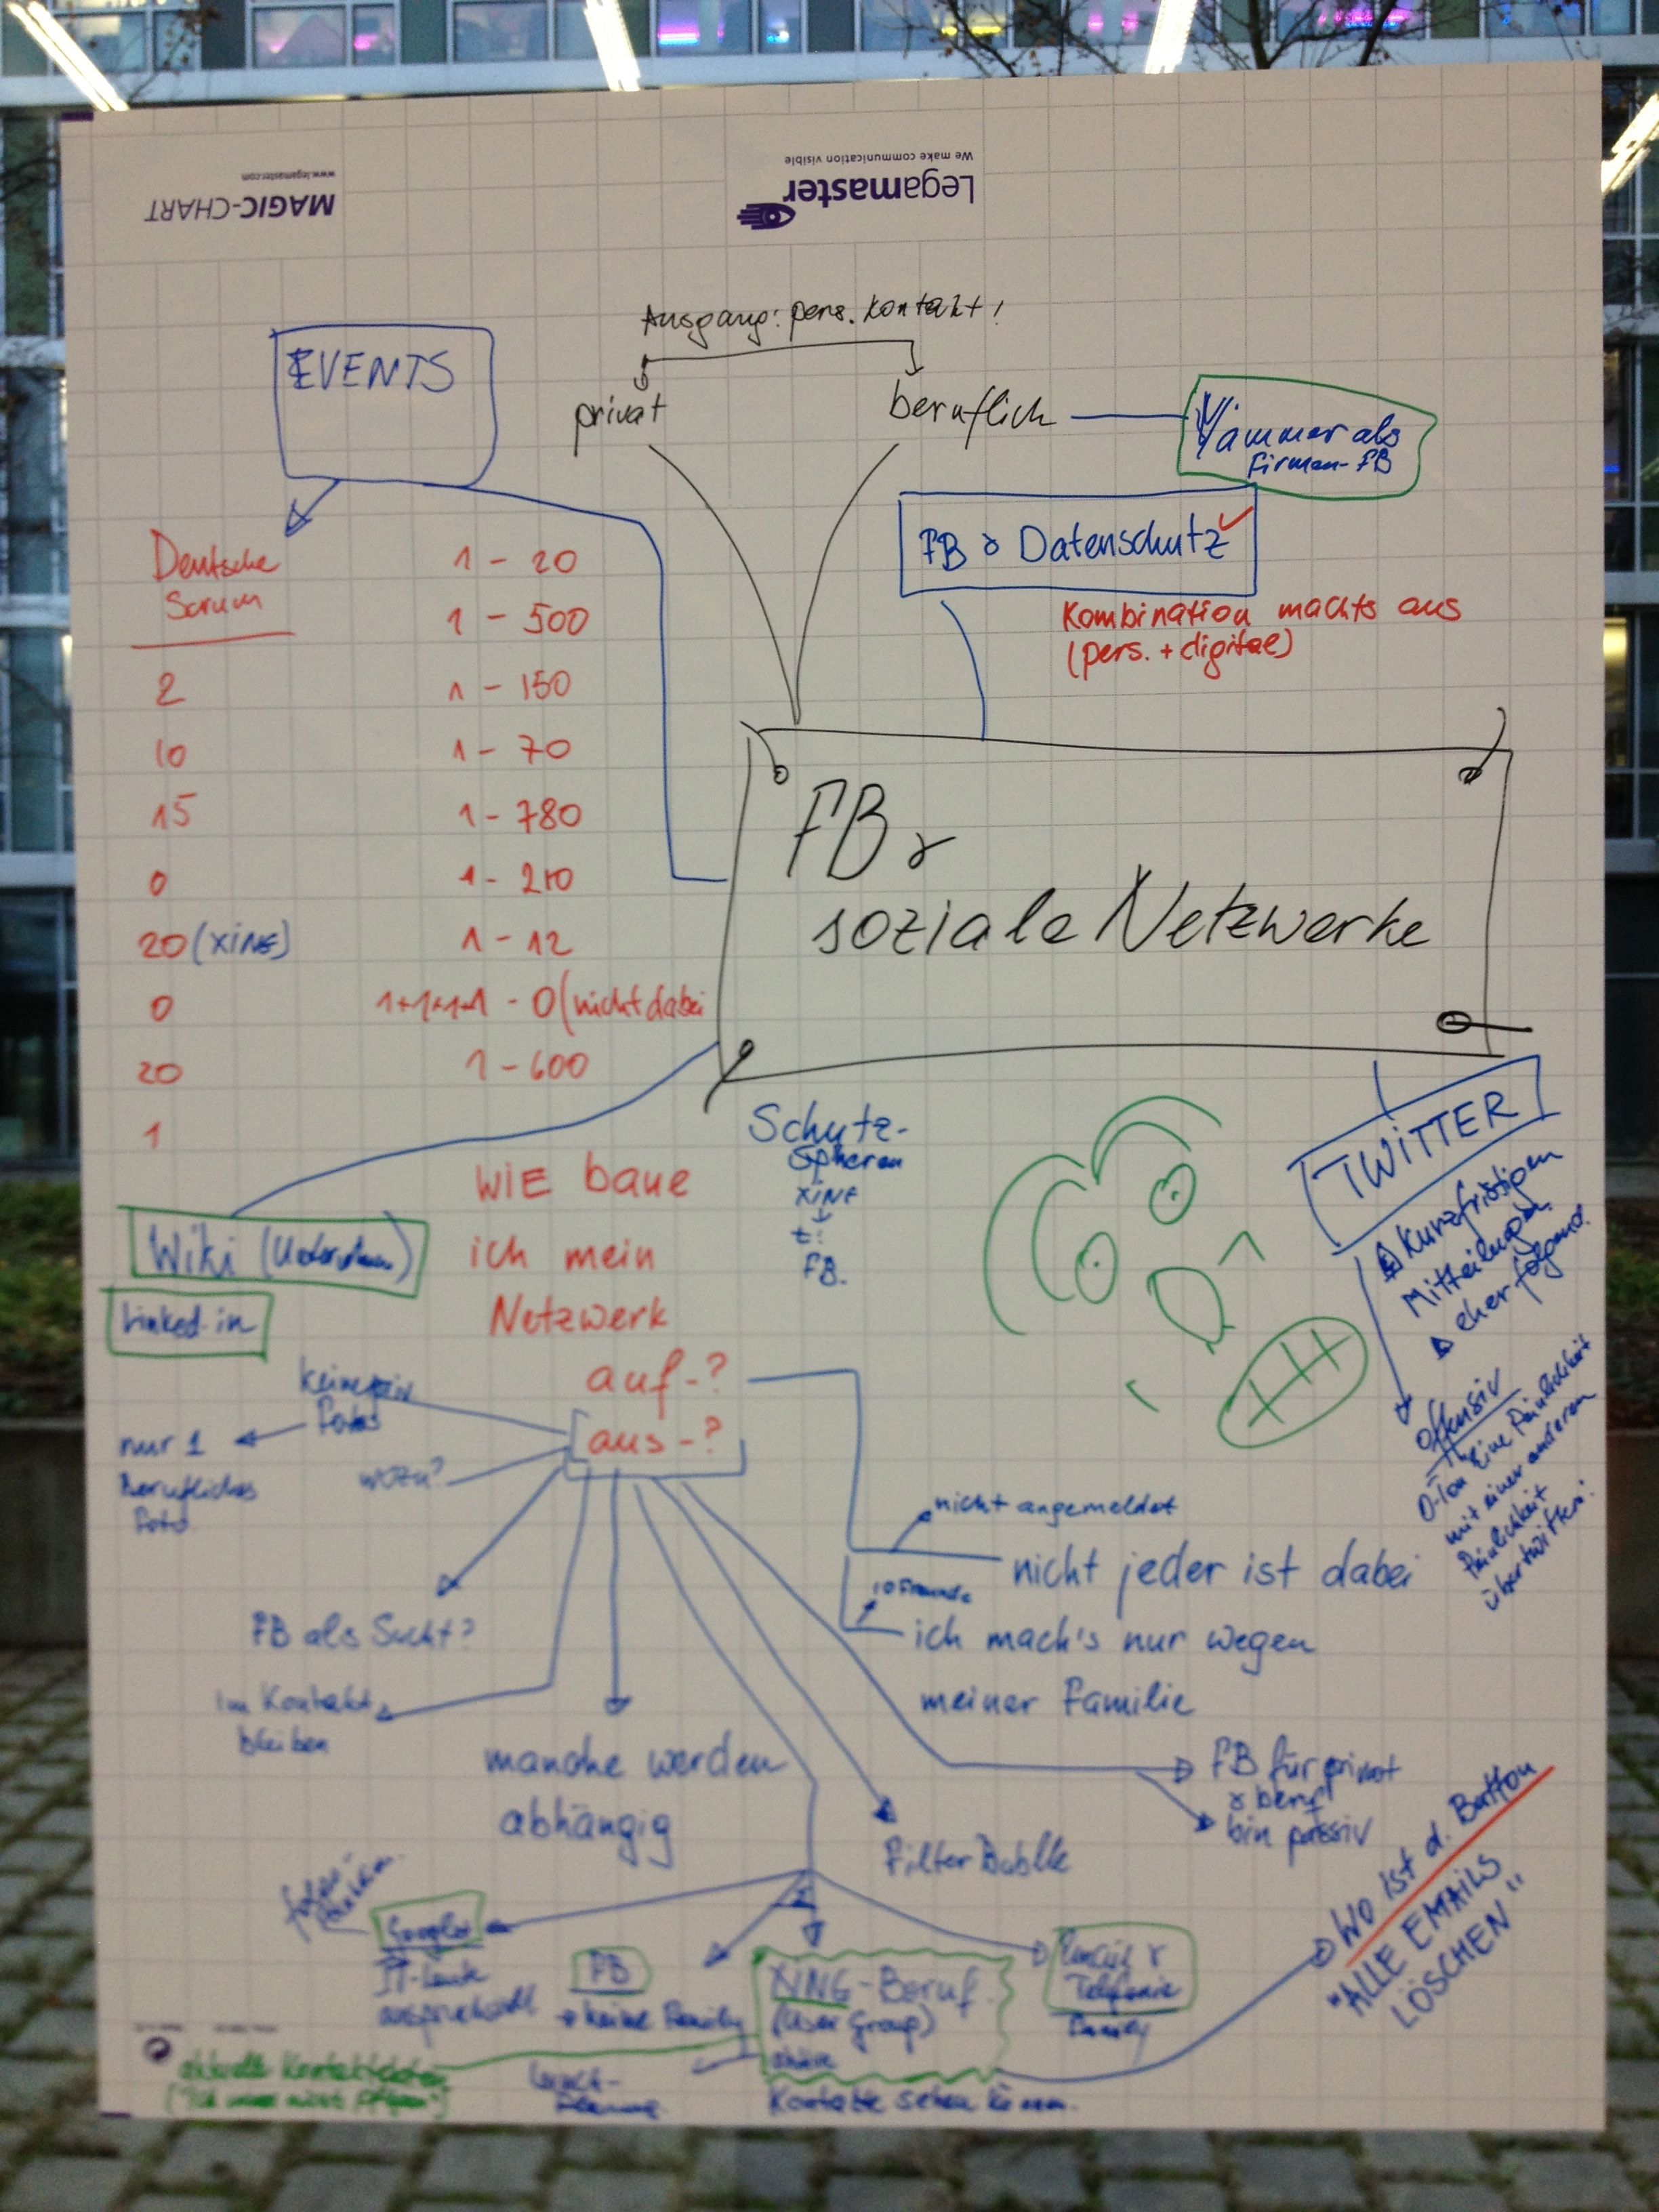 www.legamaster.com
MAGIC-CHART
We make communication visible
Legamaster
Ausgang: pers. Kontakt!
privat
beruflich
EVENTS
Yammer als
Firmen-FB
FB & Datenschutz ✓
Kombination machts aus
(pers. + digital)
Deutsche
Scrum
2
10
15
0
20 (XING)
0
20
1
1 - 20
1 - 500
1 - 150
1 - 70
1 - 780
1 - 210
1 - 12
1+1+1+1 - 0 (nicht dabei
1 - 600
FB &
soziale Netzwerke
Schutz-
Sphären
XING
FB.
TWITTER
Kurzfristigen
Mitteilungen
eher folgend
offensiv
O-Ton Eine Peinlichkeit
mit einer anderen
Peinlichkeit
übertwittern.
Wiki
Linked-in
WIE baue
ich mein
Netzwerk
auf-?
aus-?
keine
Fotos
nur 1
Berufliches
Foto
wozu?
nicht angemeldet
nicht jeder ist dabei
10 Freunde
ich mach's nur wegen
meiner Familie
FB als Sucht?
Im Kontakt
bleiben
manche werden
abhängig
Filter Bubble
FB für privat
& beruf
bin passiv
Wo ist d. Button
"ALLE EMAILS
LÖSCHEN"
Google+
IT-Leute
FB
keine Family
XING-Beruf
(User Group)
Kontakte sehen können.
Telefonie
Family
aktuelle Kontaktdaten